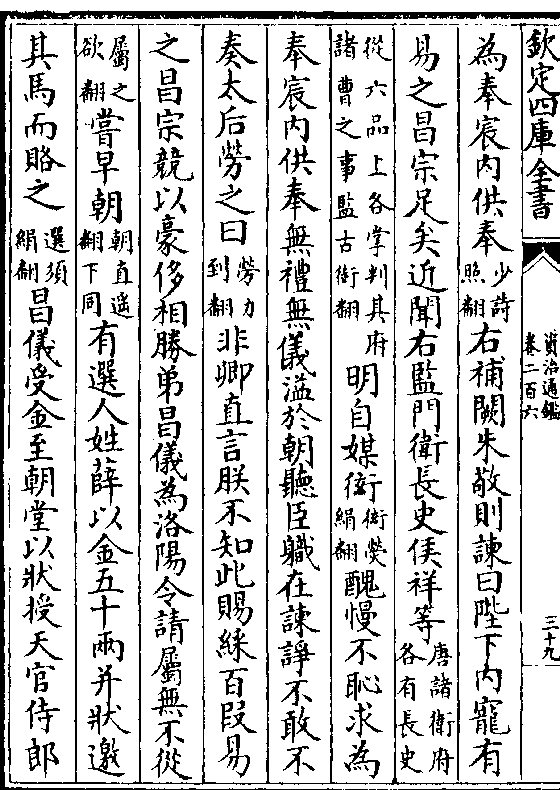 欽定四庫全書
資治通鑑
卷二百六
三十九
為奉宸内供奉少詩照翻右補闕朱敬則諫曰陛下内寵有
易之昌宗足矣近聞右監門衛長史侯祥等唐諸衛府各有長史
從六品上各掌判其府諸曹之事監古衘翻明自媒衒衒熒絹翻醜慢不恥求為
奉宸内供奉無禮無儀溢於朝聽臣職在諫諍不敢不
奏太后勞之曰勞力到翻非卿直言朕不知此賜綵百段易
之昌宗競以豪侈相勝弟昌儀為洛陽令請屬無不從
屬之欲翻嘗早朝朝直遥翻下同有選人姓薛以金五十兩并狀邀
其馬而賂之選須絹翻昌儀受金至朝堂以狀授天官侍郎